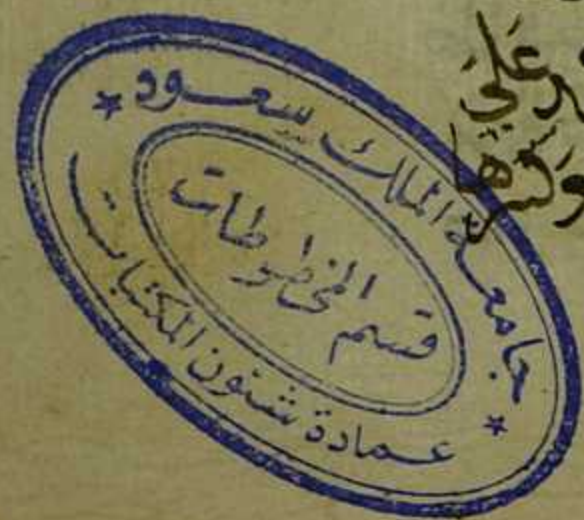 علي
وكسرها
جامعة الملك سعود
قسم المخطوطات
عمادة شئون المكتبات